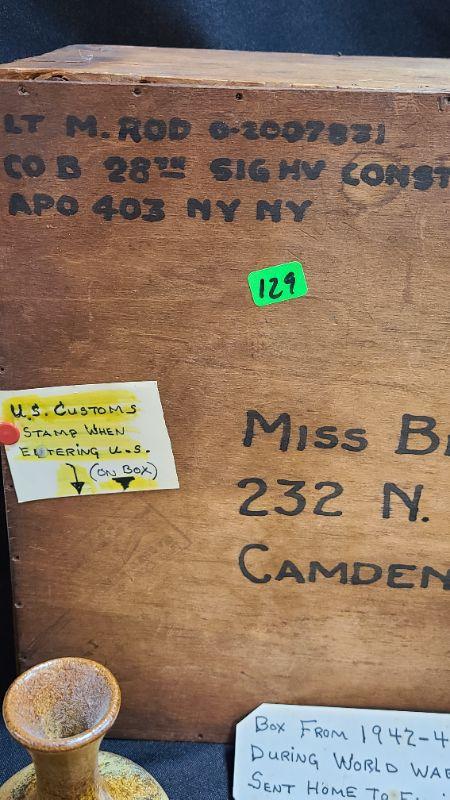 LT M. ROD O-2007831
CO B 28TH SIG HV CONST
APO 403 NY NY
129
U.S. CUSTOMS
STAMP WHEN
ENTERING U.S.
(ON BOX)
MISS
232 N.
CAMDEN
BOX FROM 1942-4
DURING WORLD WAR
SENT HOME TO